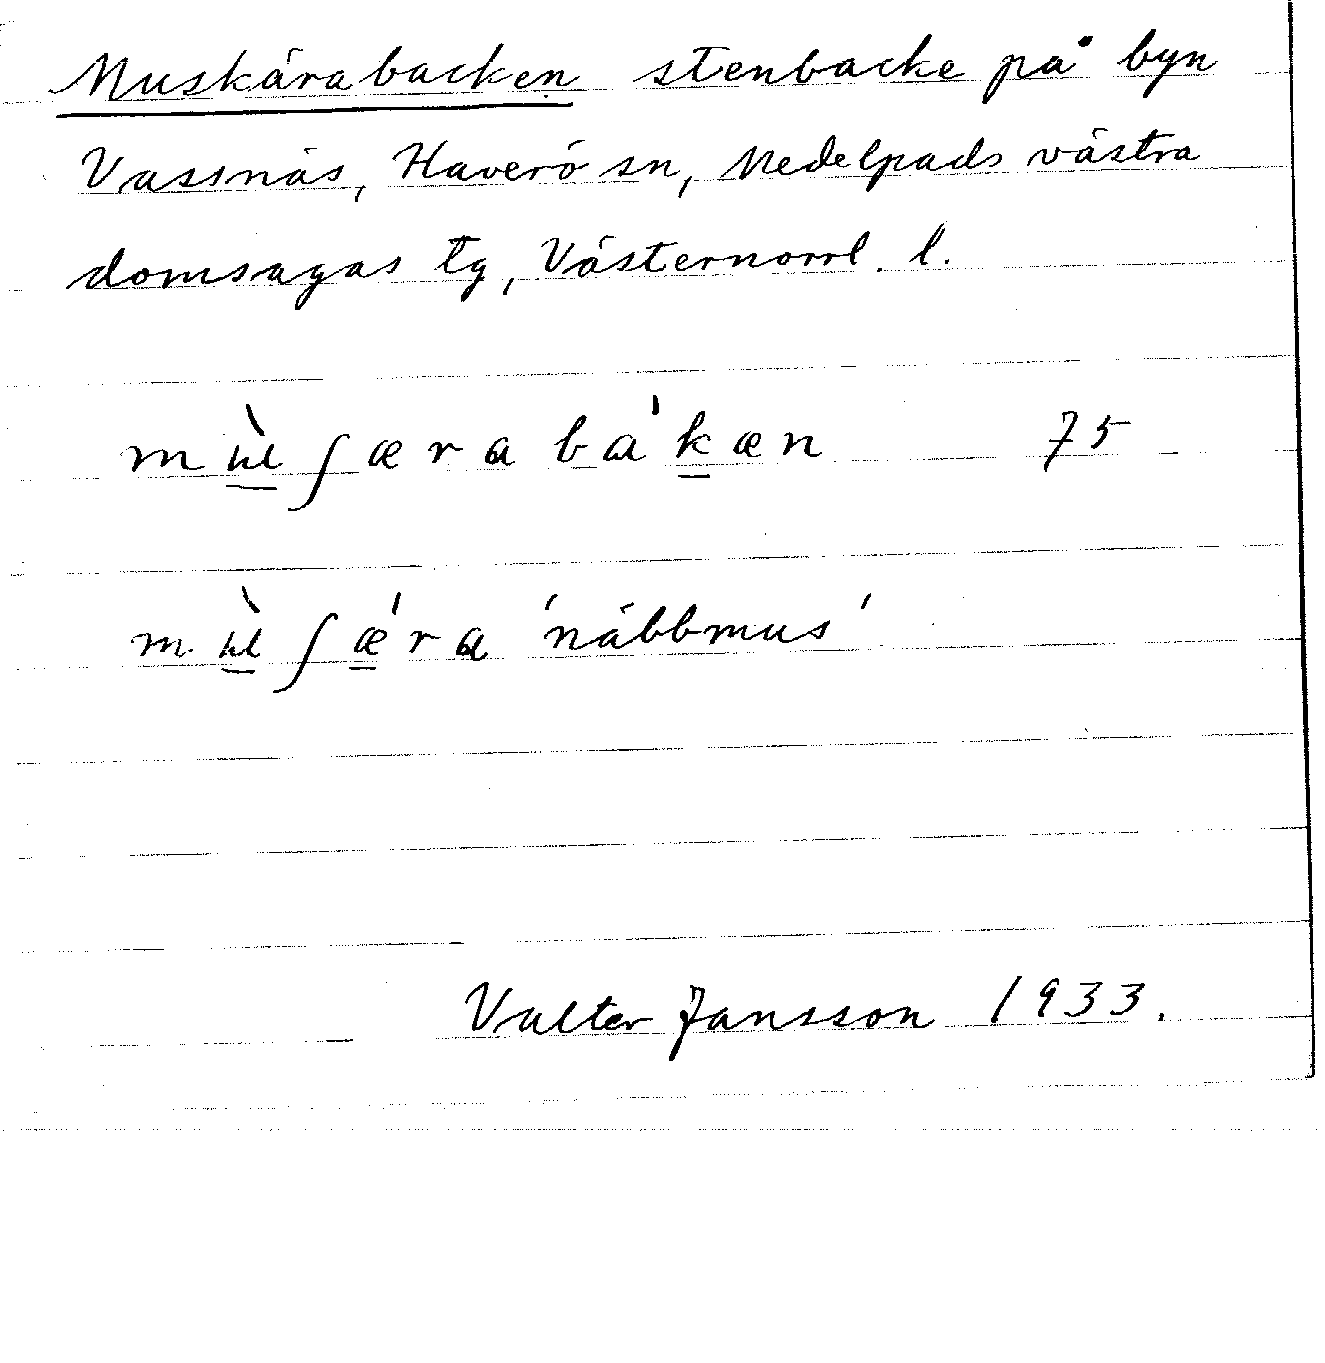 Muskärabacken stenbacke på byn
Vassnäs, Haverö sn, Medelpads västra
domsagas tg, Västernorrl. l.
mùʃæraba'kæn 75
mùʃæ'ra 'näbbmus'
Valter Jansson 1933.